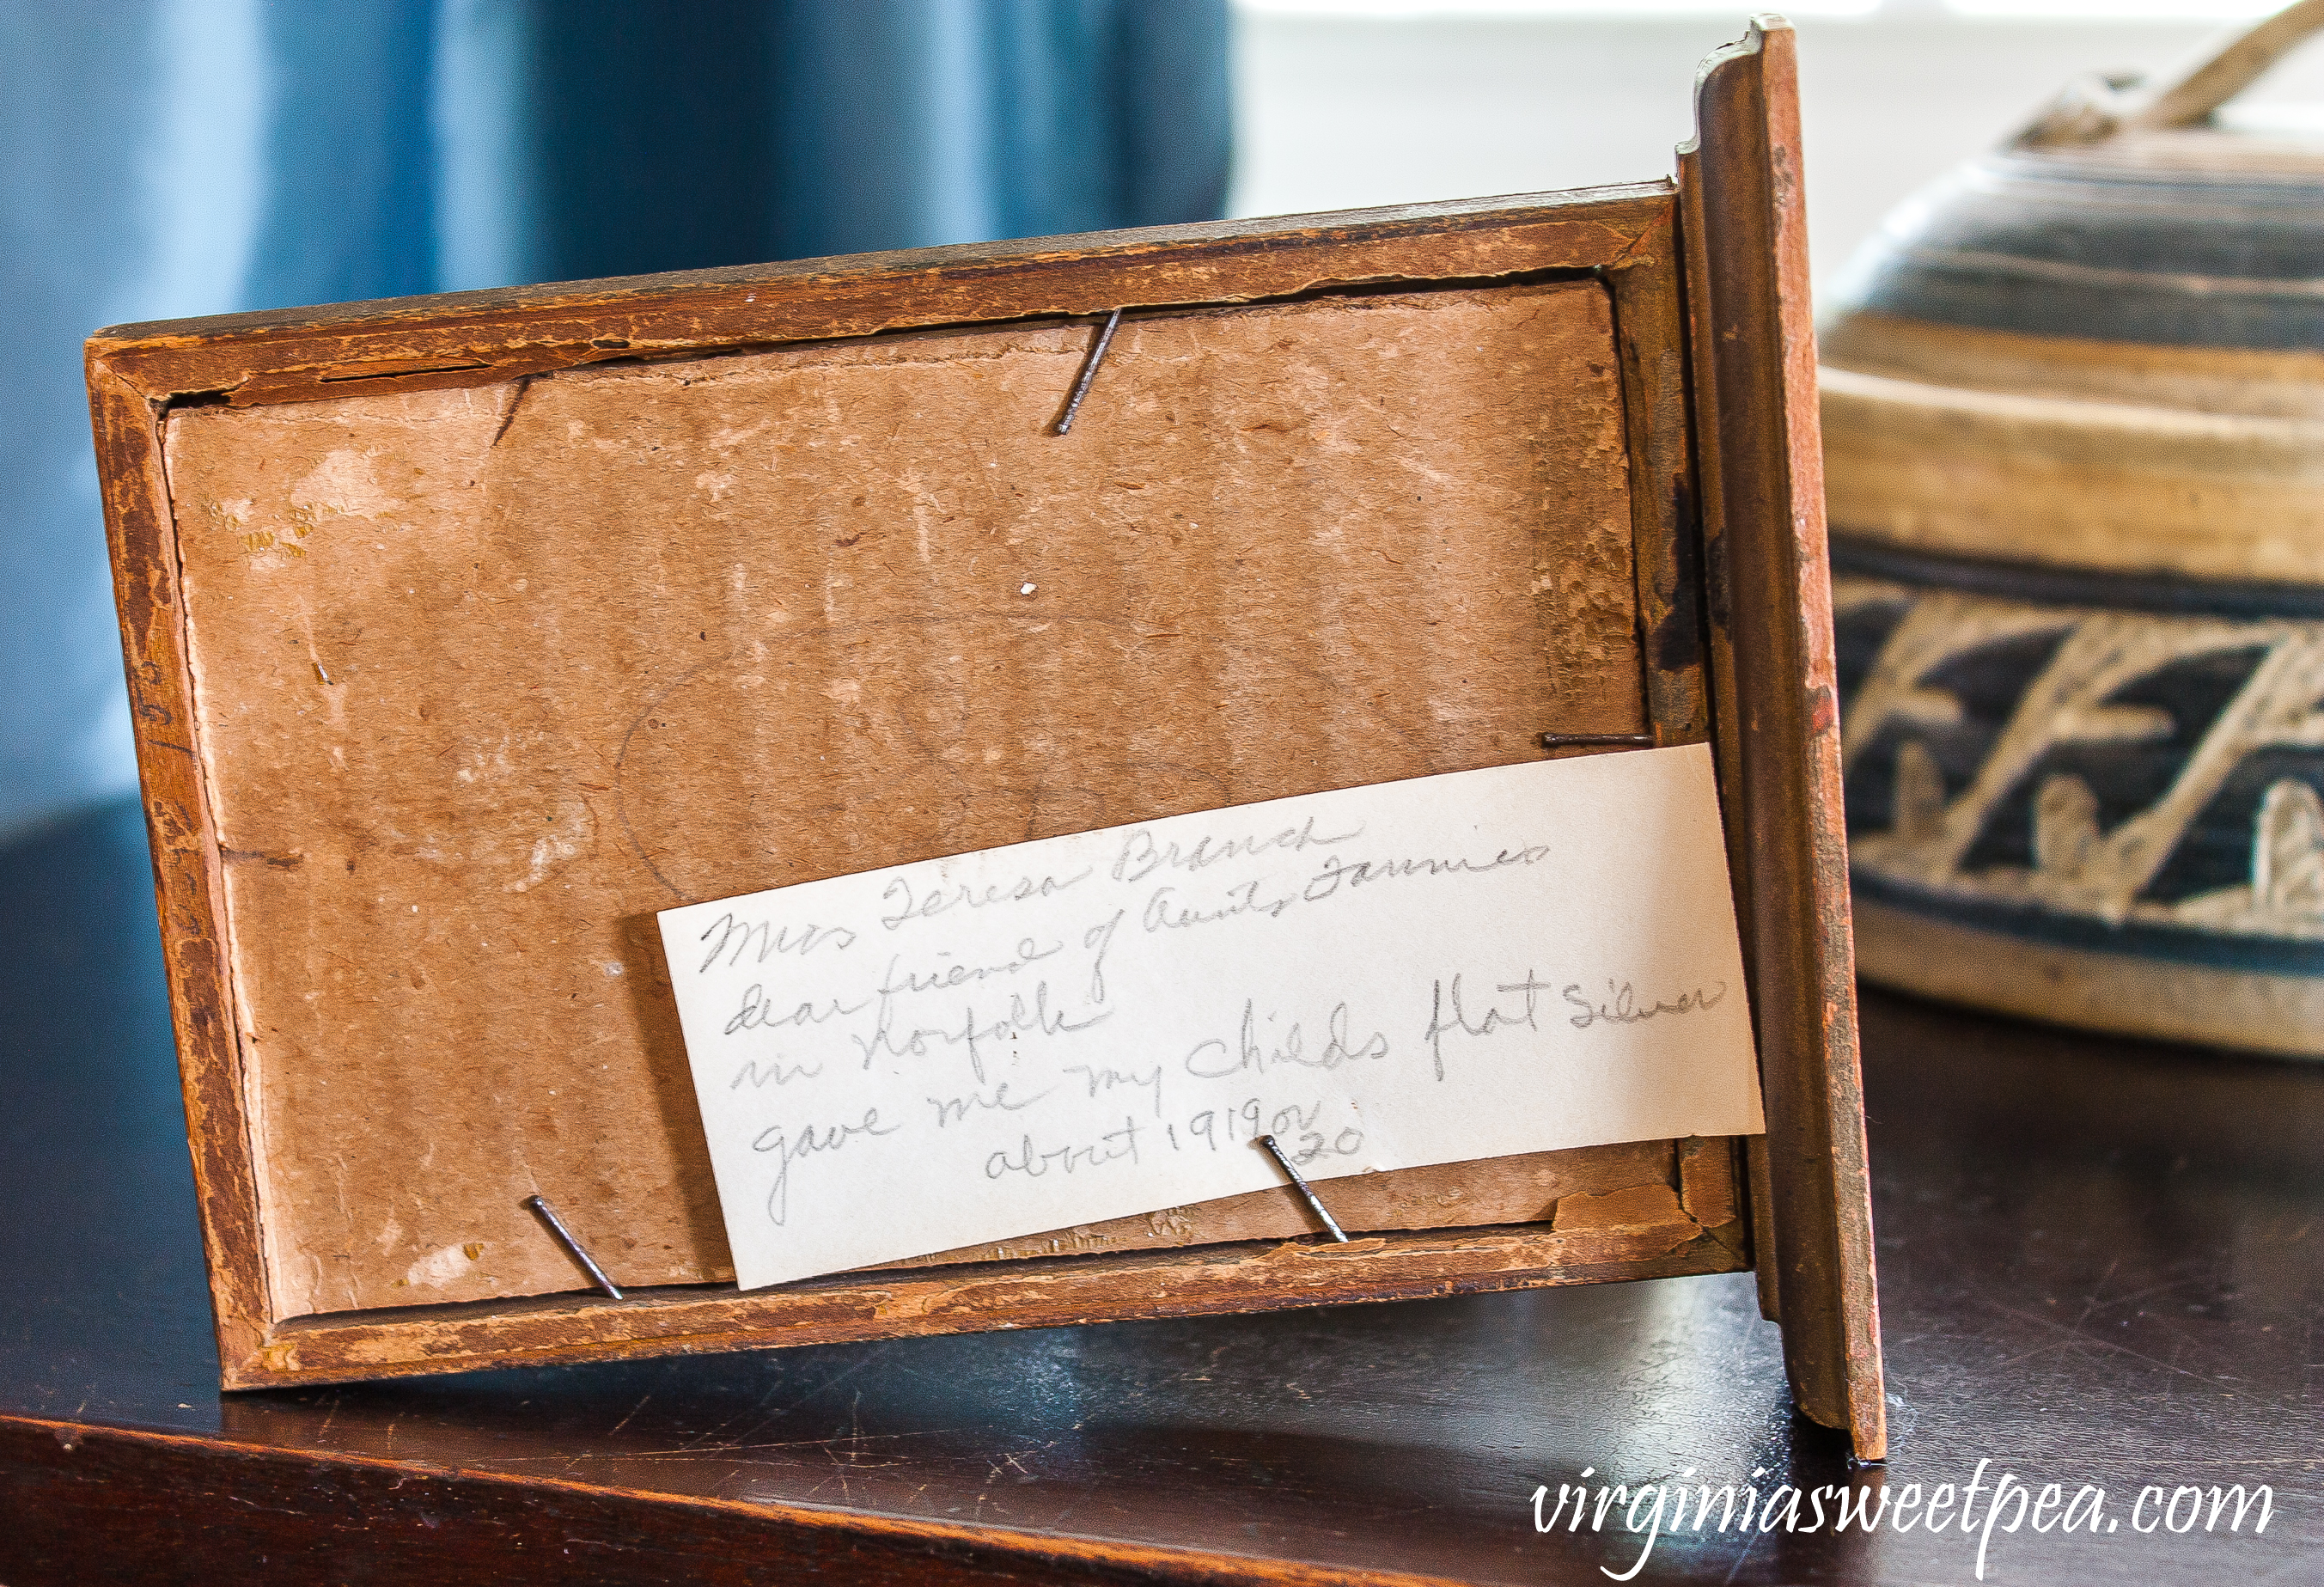 Miss Teresa Branch
dear friend of Aunts Fannies
in Norfolk
gave me my childs flat silver
about 1919 or
20
virginiasweetpea.com